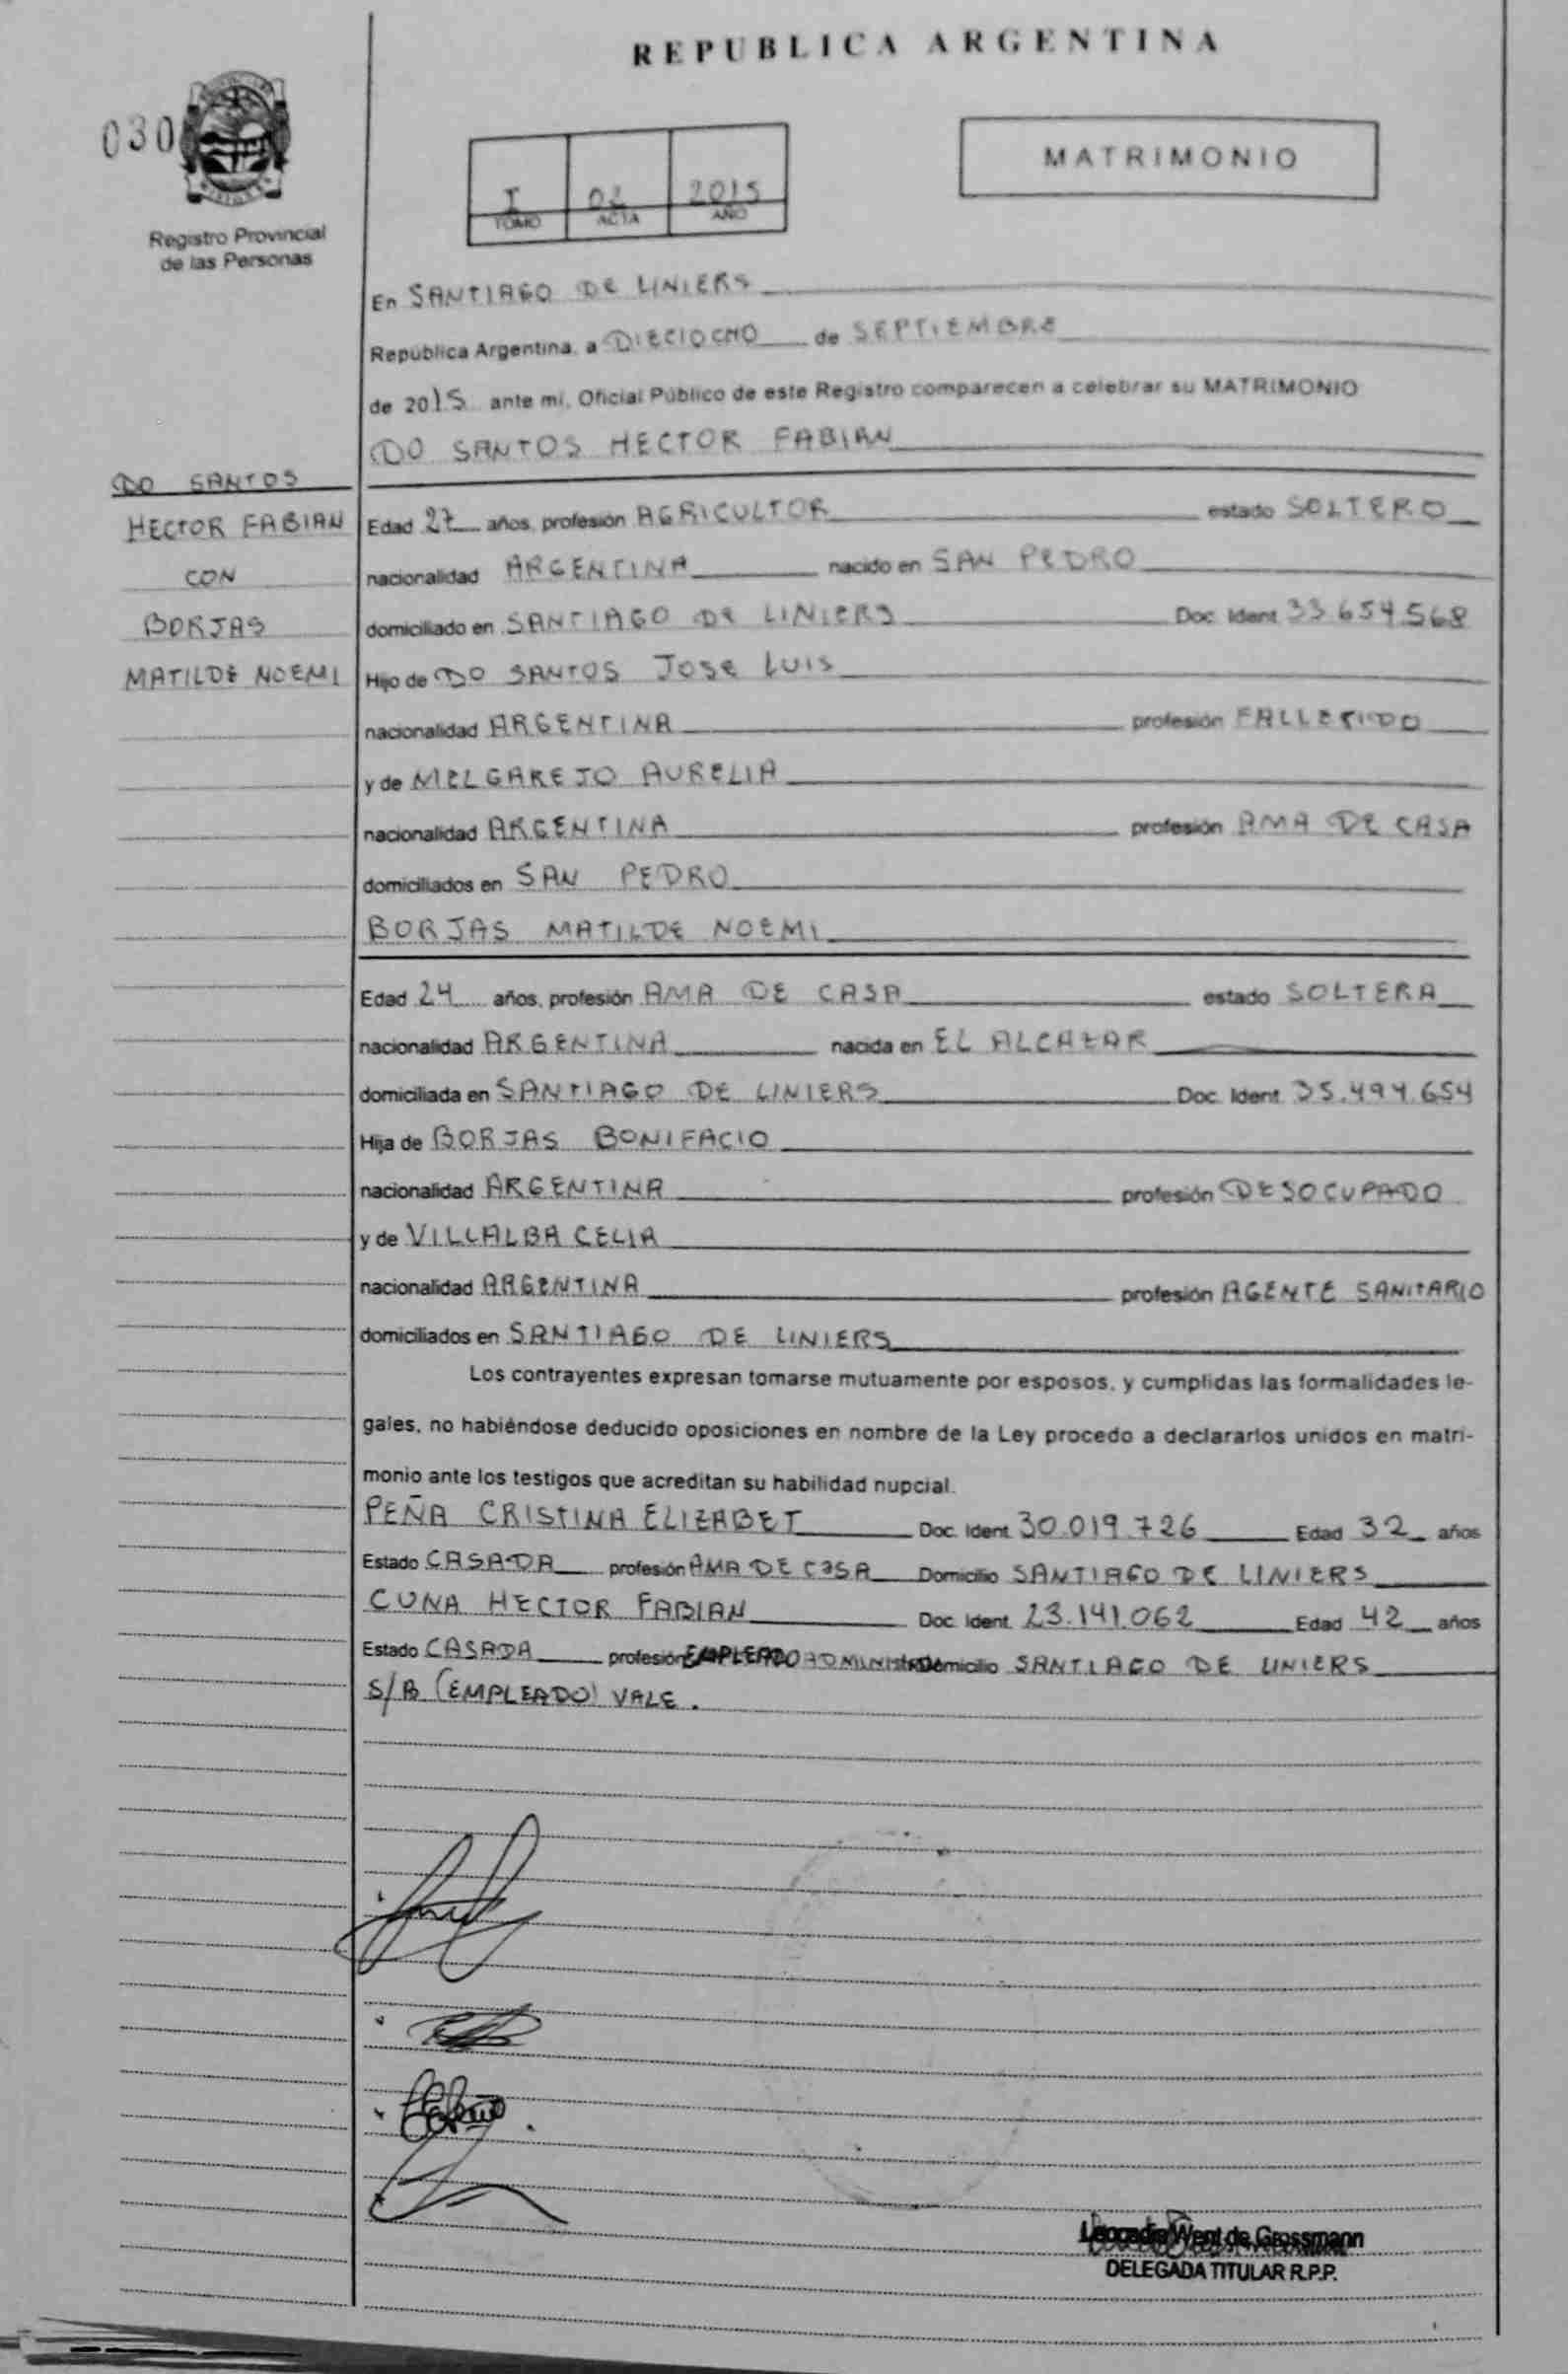 REPUBLICA ARGENTINA
030
MATRIMONIO
I 02 2015
TOMO ACTA AÑO
Registro Provincial
de las Personas
En SANTIAGO DE LINIERS
República Argentina, a DIECIOCHO de SEPTIEMBRE
de 2015 ante mi, Oficial Público de este Registro comparecen a celebrar su MATRIMONIO
DO SANTOS HECTOR FABIAN
DO SANTOS
HECTOR FABIAN
CON
BORJAS
MATILDE NOEMI
Edad 27 años, profesión AGRICULTOR estado SOLTERO
nacionalidad ARGENTINA nacido en SAN PEDRO
domiciliado en SANTIAGO DE LINIERS Doc. Ident. 33.654.568
Hijo de DO SANTOS JOSE LUIS
nacionalidad ARGENTINA profesión FALLECIDO
y de MELGAREJO AURELIA
nacionalidad ARGENTINA profesión AMA DE CASA
domiciliados en SAN PEDRO
BORJAS MATILDE NOEMI
Edad 24 años, profesión AMA DE CASA estado SOLTERA
nacionalidad ARGENTINA nacida en EL ALCAZAR
domiciliada en SANTIAGO DE LINIERS Doc. Ident. 35.494.654
Hija de BORJAS BONIFACIO
nacionalidad ARGENTINA profesión DESOCUPADO
y de VILLALBA CELIA
nacionalidad ARGENTINA profesión AGENTE SANITARIO
domiciliados en SANTIAGO DE LINIERS
Los contrayentes expresan tomarse mutuamente por esposos, y cumplidas las formalidades le-
gales, no habiéndose deducido oposiciones en nombre de la Ley procedo a declararlos unidos en matri-
monio ante los testigos que acreditan su habilidad nupcial.
PEÑA CRISTINA ELIZABET Doc. Ident. 30.019.726 Edad 32 años
Estado CASADA profesión AMA DE CASA Domicilio SANTIAGO DE LINIERS
CUNA HECTOR FABIAN Doc. Ident. 23.141.062 Edad 42 años
Estado CASADA profesión EMPLEADO Domicilio SANTIAGO DE LINIERS
S/B (EMPLEADO) VALE.
Leocadia Went de Grossmann
DELEGADA TITULAR R.P.P.